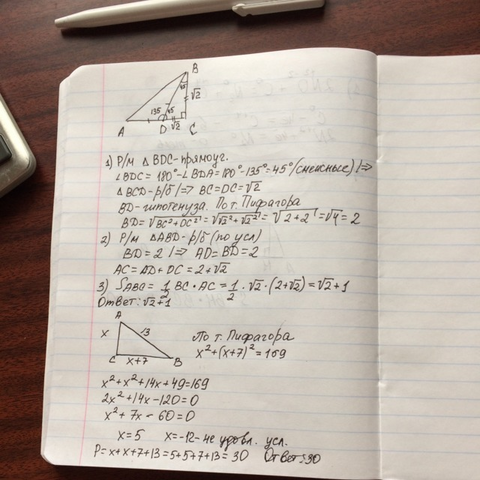 B
45
135 45
√2
A D √2 C
1) Р/м △BDC-прямоуг.
∠BDC = 180°-∠BDA=180°-135°=45°(смежные) |⇒
△BCD-р/б |⇒ BC=DC=√2
BD-гипотенуза. По т. Пифагора
BD=√BC²+DC²=√√2²+√2²=√2+2=√4=2
2) Р/м △ABD-р/б (по усл)
BD=2 |⇒ AD=BD=2
AC=AD+DC=2+√2
3) SABC=1/2 BC·AC=1/2·√2·(2+√2)=√2+1
Ответ: √2+1
A
x 13
C x+7 B
По т. Пифагора
x²+(x+7)²=169
x²+x²+14x+49=169
2x²+14x-120=0
x²+7x-60=0
x=5 x=-12-не удовл. усл.
P=x+x+7+13=5+5+7+13=30 Ответ:30